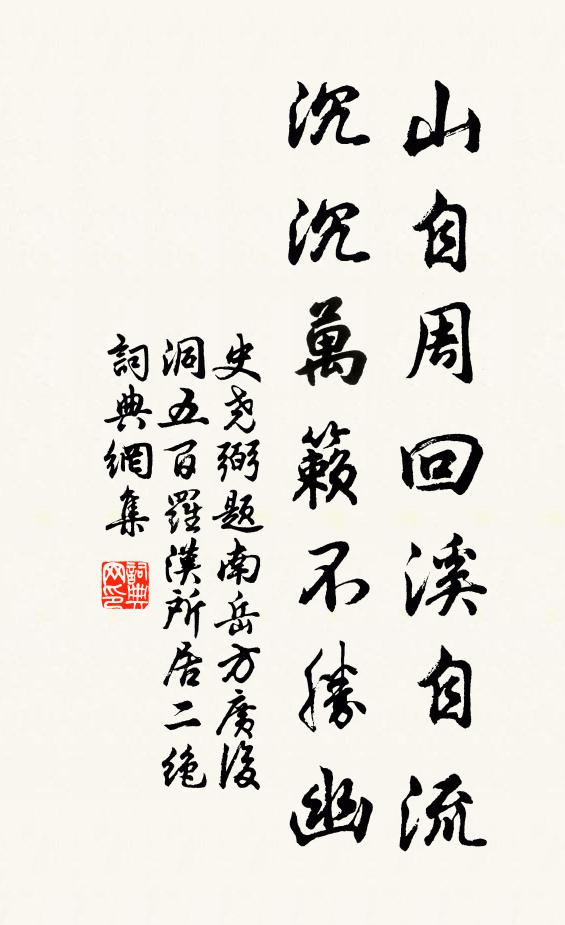 山自周回溪自流
沉沉萬籟不勝幽
史堯弼題南岳方廣後
洞五百羅漢所居二絕
詞典網集
詞典网印